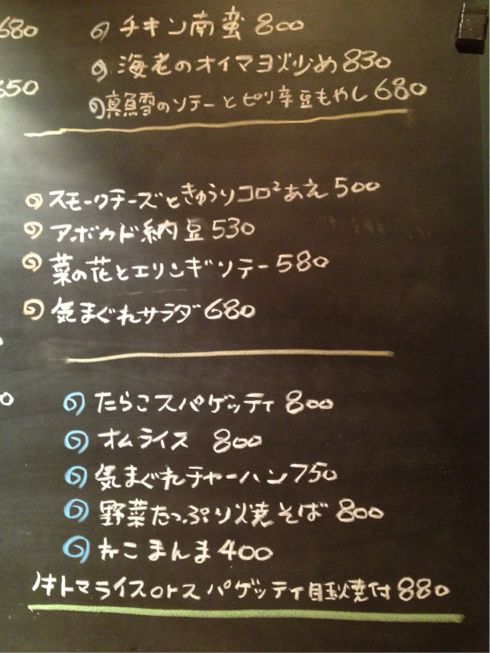 680
チキン南蛮 800
海老のオイマヨ炒め 830
650
真鱈のソテーとピリ辛豆もやし 680
スモークチーズときゅうりコロ²あえ 500
アボカド納豆 530
菜の花とエリンギソテー 580
気まぐれサラダ 680
たらこスパゲッティ 800
オムライス 800
気まぐれチャーハン 750
野菜たっぷり焼そば 800
ねこまんま 400
牛トマライスorスパゲッティ目玉焼付 880